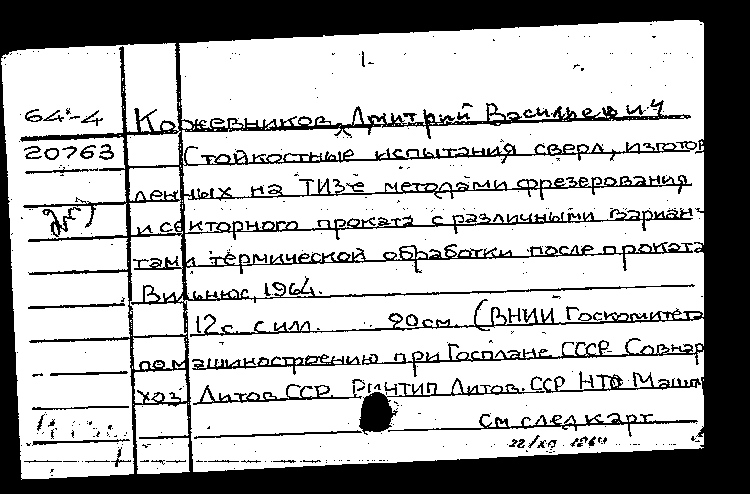 1.
64-4 Кожевников, Дмитрий Васильевич
20763 Стойкостные испытания сверл, изготов
ленных на ТИЗ-е методами фрезерования
и секторного проката с различными вариан-
тами термической обработки после проката
Вильнюс, 1964.
12 с. с илл. 20 см. (ВНИИ Госкомитета
по машиностроению при Госплане СССР. Совнар
хоз Литов. ССР. РИНТИП Литов. ССР НТО Машпр
См. след карт
22/XII 1964